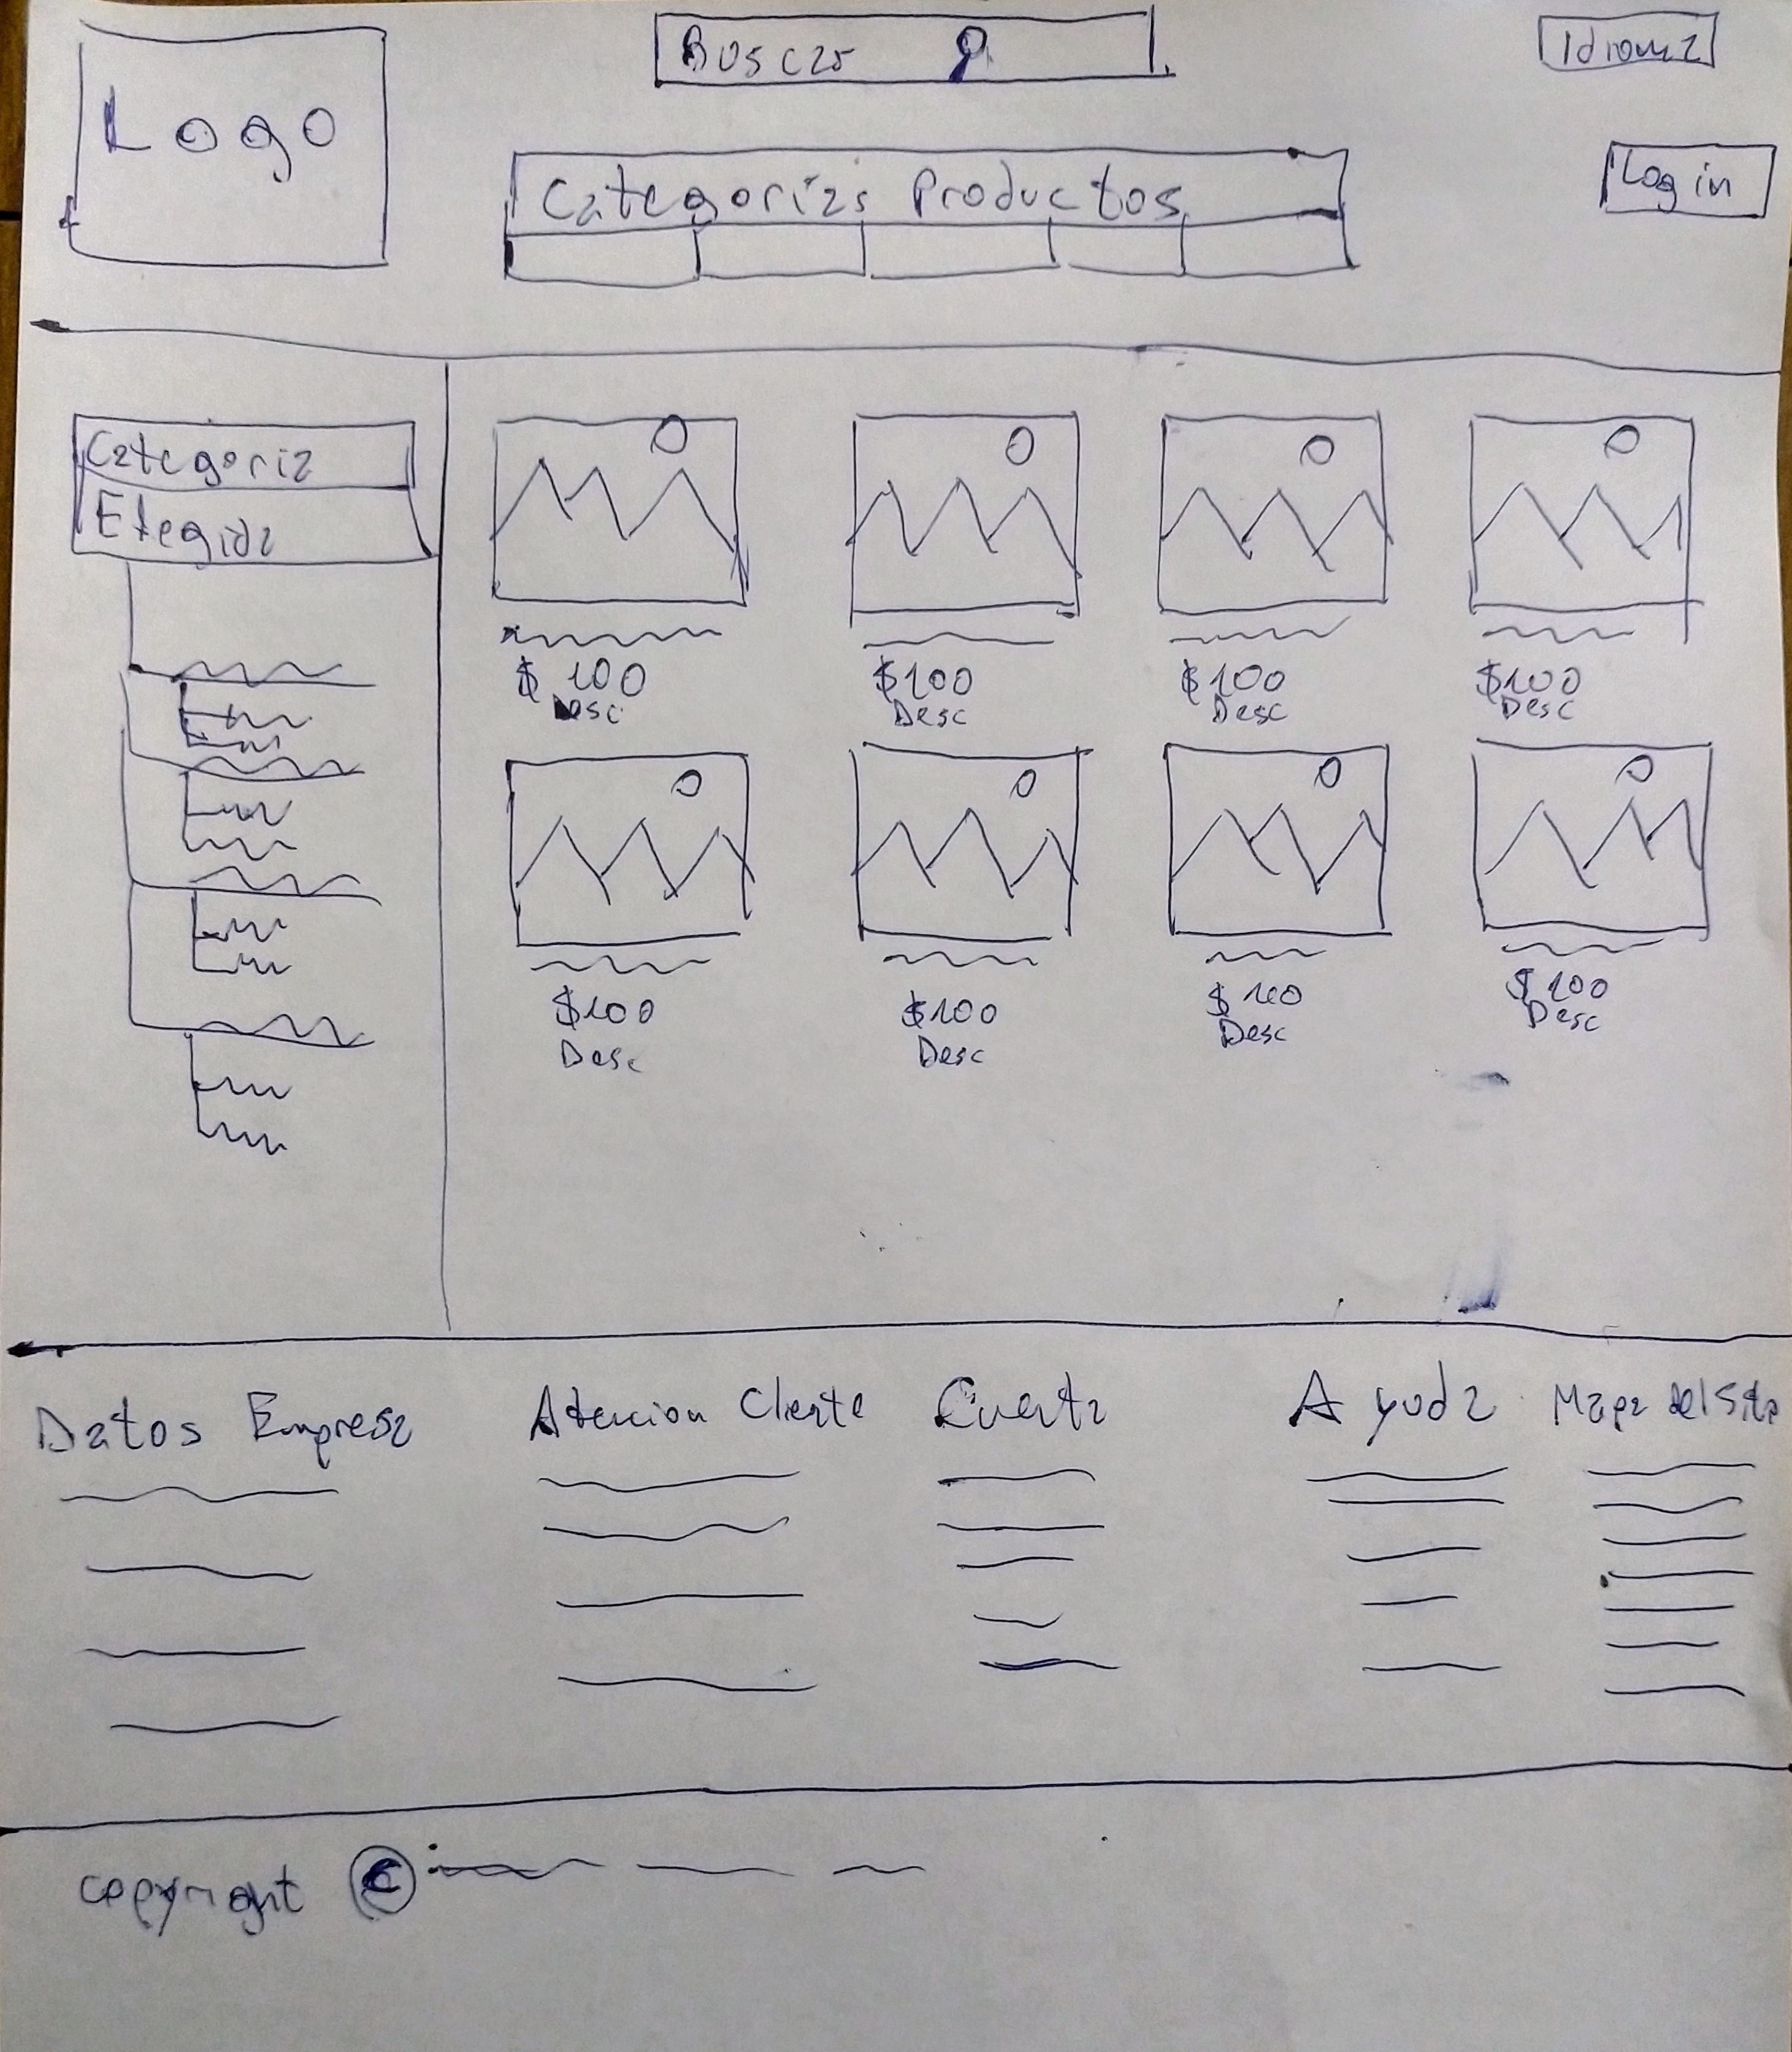 Buscar
Idioma
Logo
Categorias Productos
Log in
Categoria
Elegida
$100 $100 $100 $100
Desc Desc Desc Desc
$100 $100 $100 $100
Desc Desc Desc Desc
Datos Empresa Atencion Cliente Cuenta Ayuda Mapa del Sitio
copyright ©